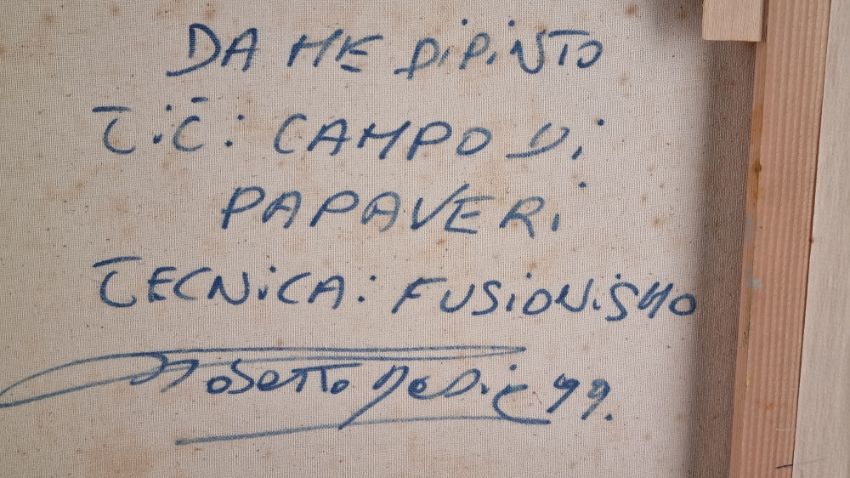 DA ME DIPINTO
TiT: CAMPO Di
PAPAVERi
TECNiCA: FUSiONiSMO
99.